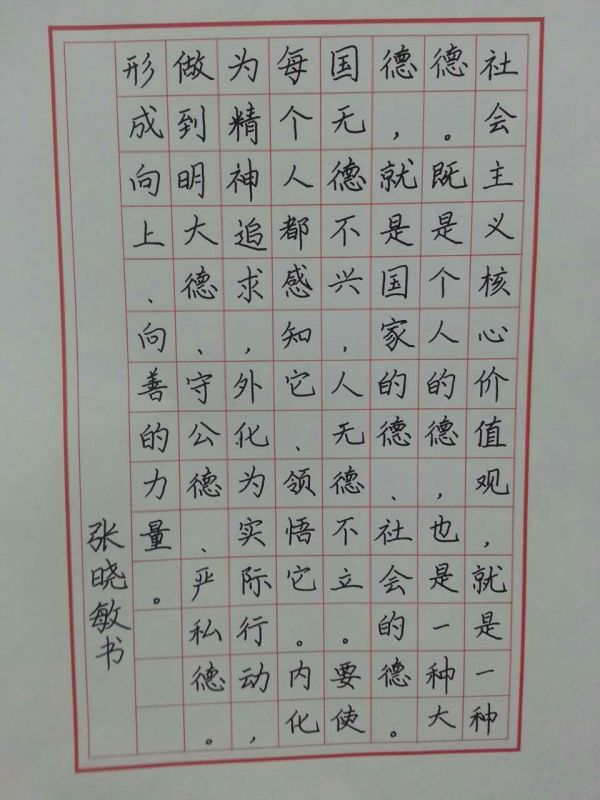 社会主义核心价值观，就是一种
德。既是个人的德，也是一种大
德，就是国家的德、社会的德。
国无德不兴，人无德不立。要使
每个人都感知它、领悟它。内化
为精神追求，外化为实际行动，
做到明大德、守公德、严私德。
形成向上、向善的力量。
张晓敏书